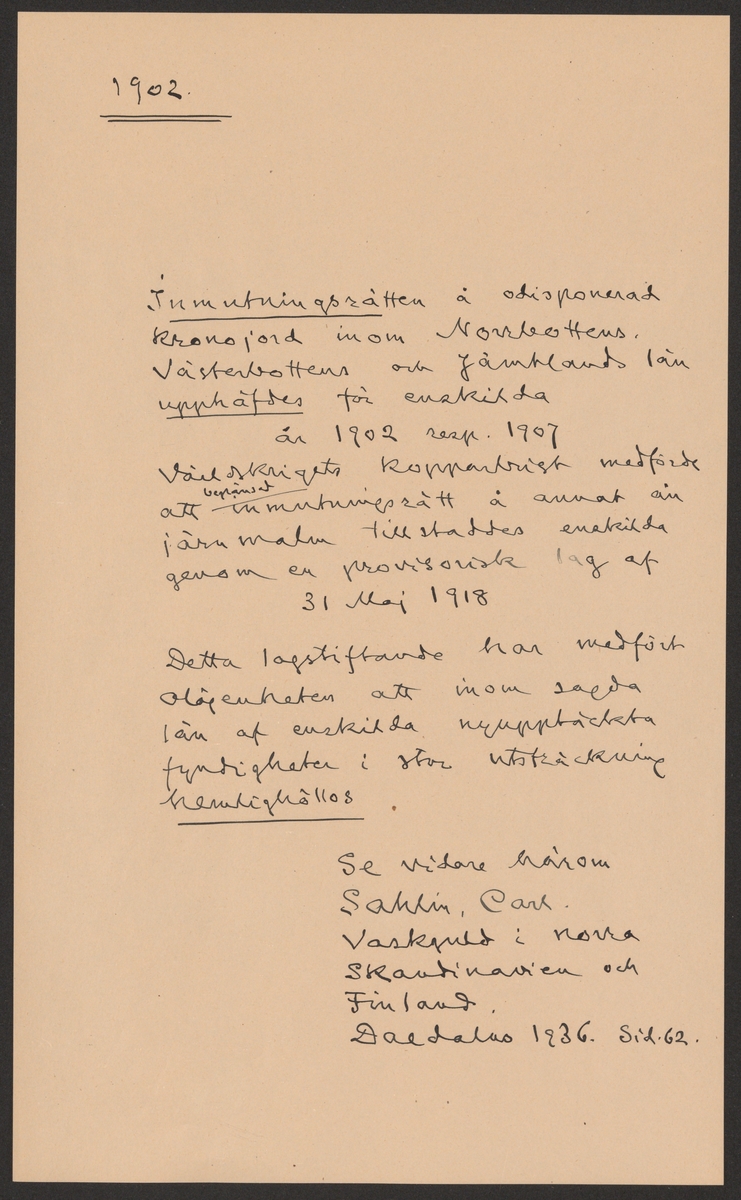 1902.
Inmutningsrätten å odisponerad
kronojord inom Norrbottens,
Västerbottens och Jämtlands län
upphäfdes för enskilda
år 1902 resp. 1907
Världskrigets kopparbrist medförde
begränsad
att inmutningsrätt å annat än
järnmalm tillstaddes enskilda
genom en provisorisk lag af
31 Maj 1918
Detta lagstiftande har medfört
olägenheten att inom sagda
län af enskilda nyupptäckta
fyndigheter i stor utsträckning
hemlighöllos
Se vidare härom
Sahlin, Carl.
Vaskguld i norra
Skandinavien och
Finland.
Daedalus 1936. Sid. 62.